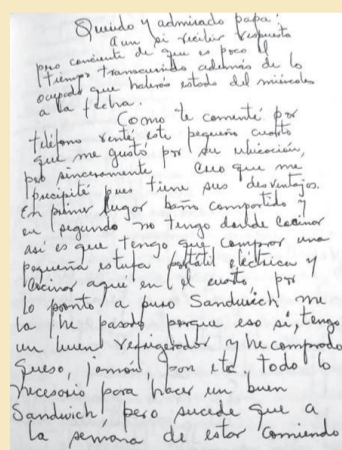 Querido y admirado papá:
Aun sin recibir respuesta
pero conciente de que es poco el
tiempo transcurrido además de lo
ocupado que habrás estado del miércoles
a la fecha.
Como te comenté por
teléfono renté este pequeño cuarto
que me gustó por su ubicación,
pero sinceramente creo que me
precipité pues tiene sus desventajas.
En primer lugar baño compartido y
en segundo no tengo donde cocinar
así es que tengo que comprar una
pequeña estufa portátil eléctrica y
cocinar aquí en el cuarto, por
lo pronto a puro Sandwich me
la he pasado, porque eso sí, tengo
un buen refrigerador y he comprado
queso, jamón, pan etc. todo lo
necesario para hacer un buen
Sandwich, pero sucede que a
la semana de estar comiendo